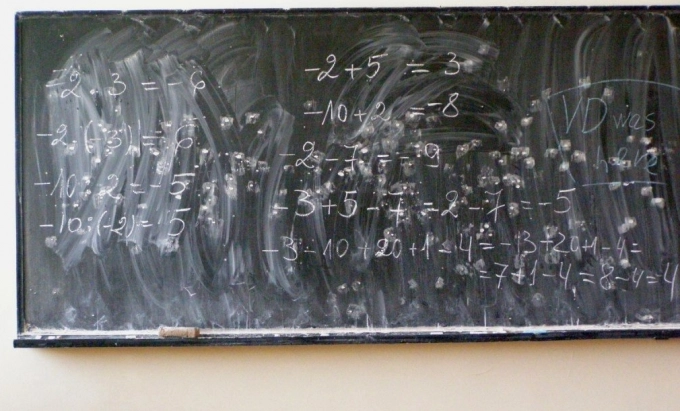 -2 · 3 = -6
-2 · (-3) = 6
-10 : 2 = -5
-10 : (-2) = 5
-2+5 = 3
-10+2 = -8
-2-7 = -9
-3+5-7 = 2-7 = -5
-3-10+20+1-4 = -13+20+1-4 =
=7+1-4=8-4=4
VD was
here